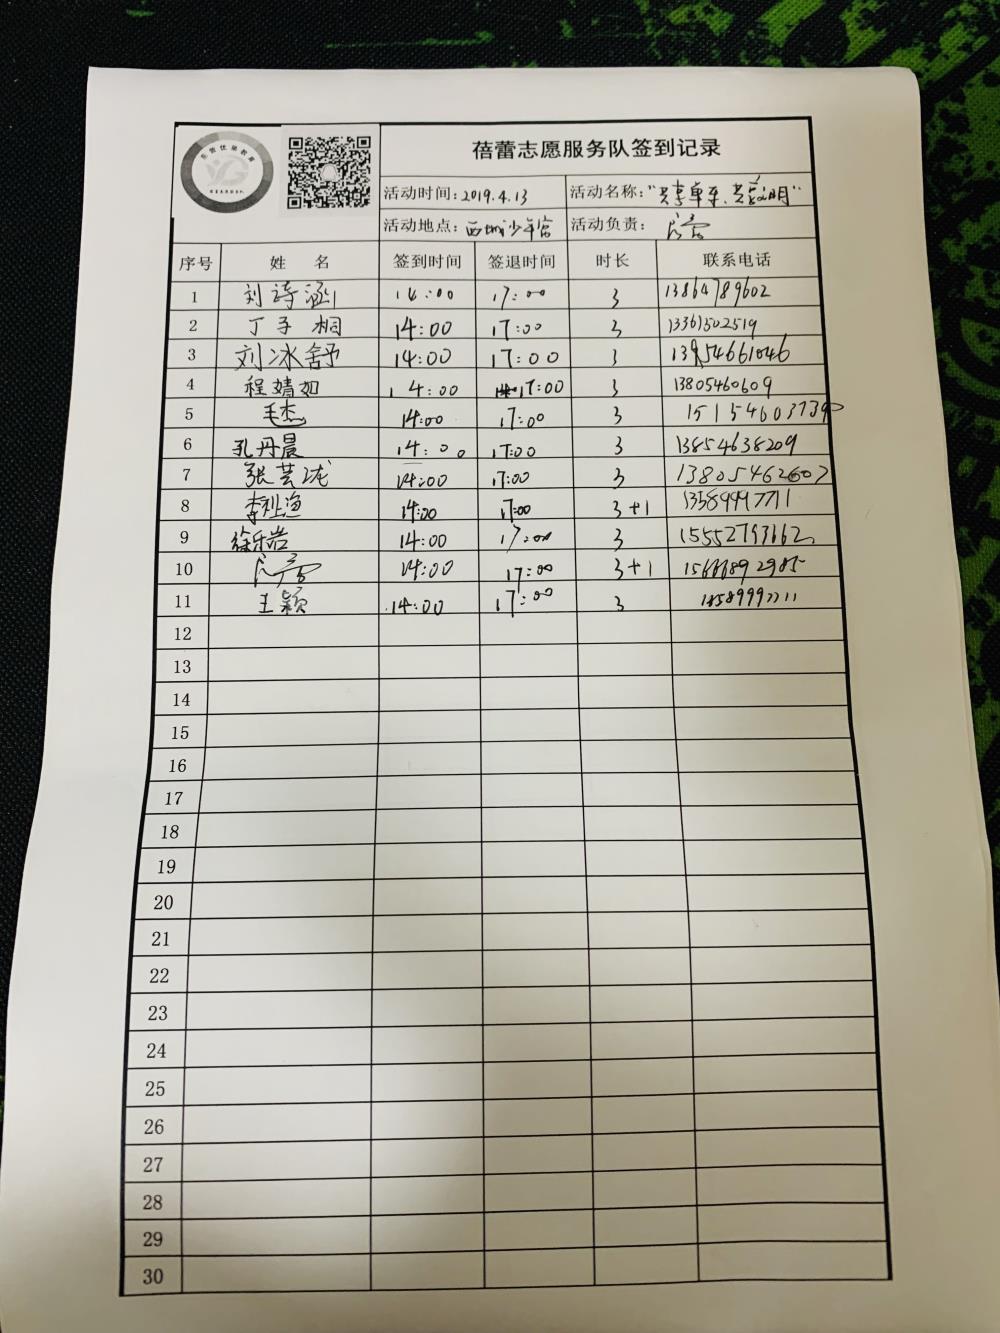 蓓蕾志愿服务队签到记录
活动时间：2019.4.13 活动名称："共享单车、共享文明"
活动地点：西城少年宫 活动负责：
序号 姓 名 签到时间 签退时间 时长 联系电话
1 刘诗涵 14:00 17:00 3 13864789602
2 丁子桐 14:00 17:00 3 13361502519
3 刘冰舒 14:00 17:00 3 13954661046
4 程婧如 14:00 17:00 3 13805460609
5 毛杰 14:00 17:00 3
6 孔丹晨 14:00 17:00 3 13854638209
7 张芸珑 14:00 17:00 3 13805462607
8 14:00 17:00 3+1 13589997711
9 徐乐岩 14:00 17:00 3 15552793662
10 14:00 17:00 3+1
11 王颖 14:00 17:00 3
12
13
14
15
16
17
18
19
20
21
22
23
24
25
26
27
28
29
30